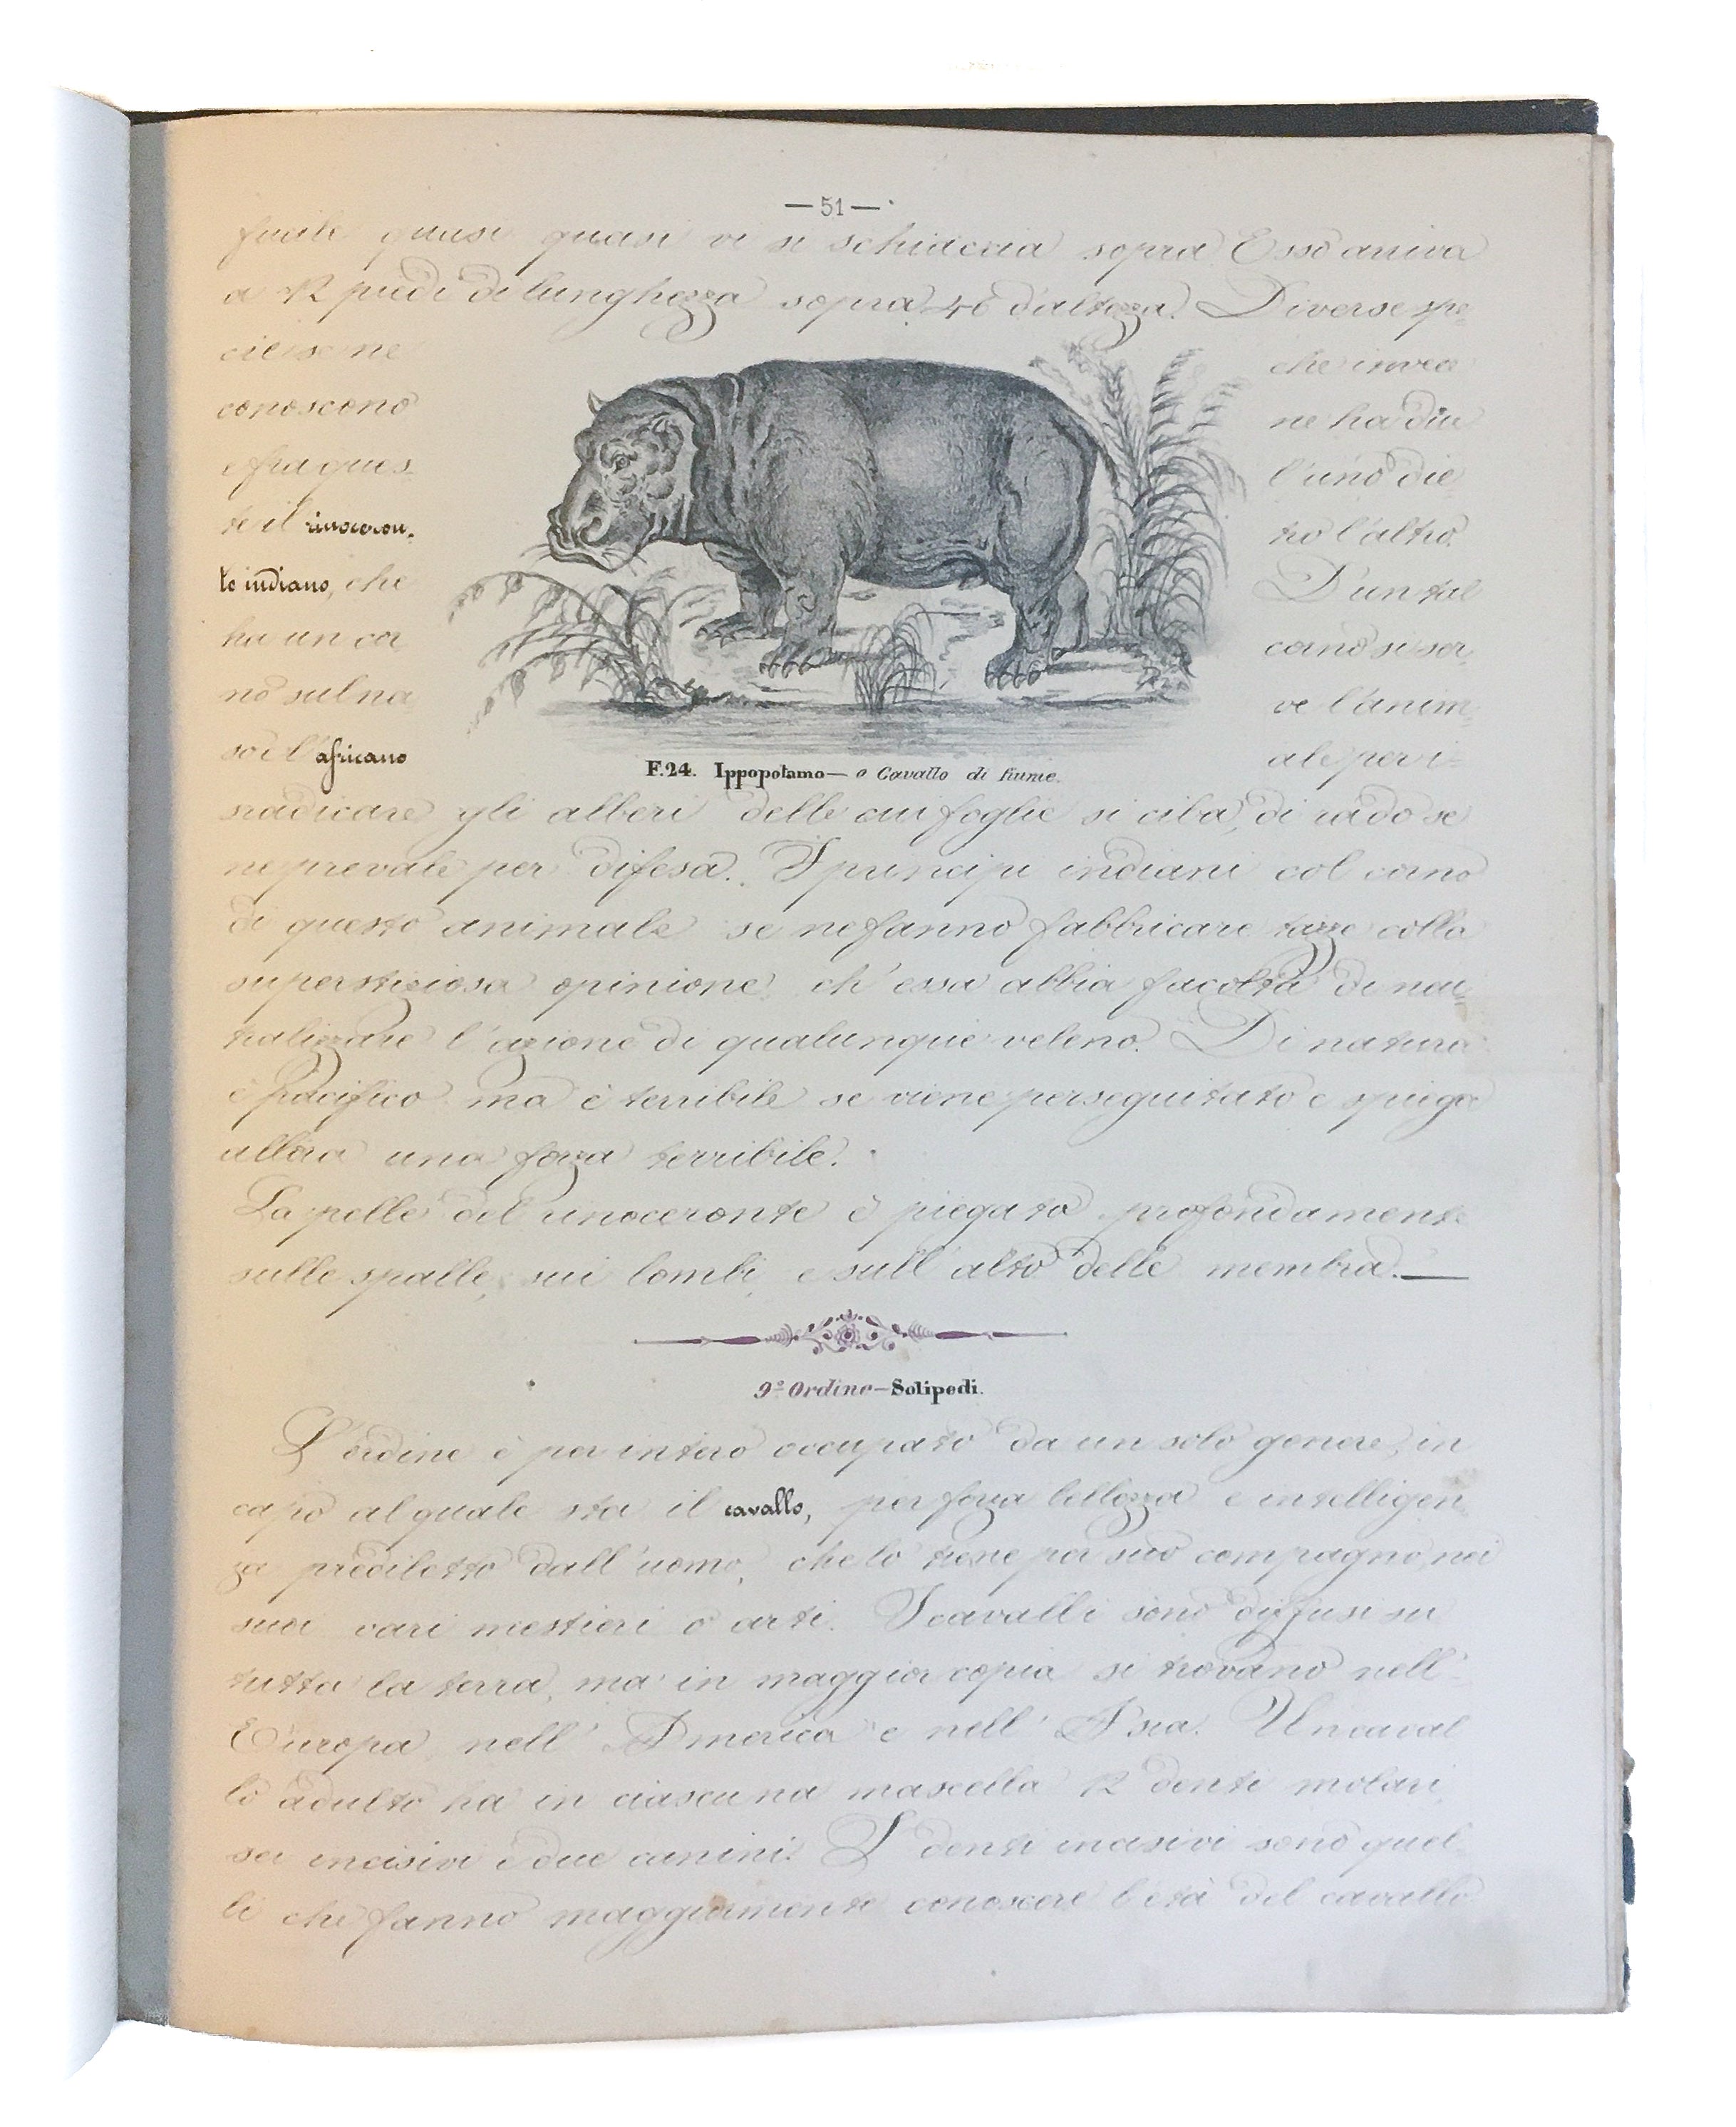 —51—
fucile quasi quasi vi si schiaccia sopra Esso arriva
a 12 piedi di lunghezza sopra d'altezza. Diverse spe=
cie se ne
conoscono
e fra ques-
te il rinoceron-
te indiano, che
ha un cor-
no sul na-
so e l'africano
che invece
ne ha due
l'uno die-
tro l'altro.
D'un tal
corno si ser-
ve l'anim-
ale per i=
F.24. Ippopotamo— o Cavallo di fiume.
sradicare gli alberi delle cui foglie si ciba, di rado se
ne prevale per difesa. I principi indiani col corno
di questo animale se ne fanno fabbricare tazze colla
superstiziosa opinione, ch'essa abbia facoltà di neu=
tralizzare l'azione di qualunque veleno. Di natura
è pacifico ma è terribile se viene perseguitato e spiega
allora una forza terribile.
La pelle del rinoceronte è piegata profondamente
sulle spalle, sui lombi, e sull'alto delle membra.—
9º Ordine—Solipedi.
L'ordine è per intero occupato da un solo genere, in
capo al quale sta il cavallo, per forza bellezza e intelligen-
za prediletto dall'uomo, che lo tiene per suo compagno, nei
suoi vari mestieri o arti. I cavalli sono diffusi su
tutta la terra, ma in maggior copia si trovano nell'
Europa, nell' America e nell' Asia. Un caval
lo adulto ha in ciascuna mascella 12 denti molari,
sei incisivi e due canini. I denti incisivi sono quel-
li che fanno maggiormente conoscere l'età del cavallo